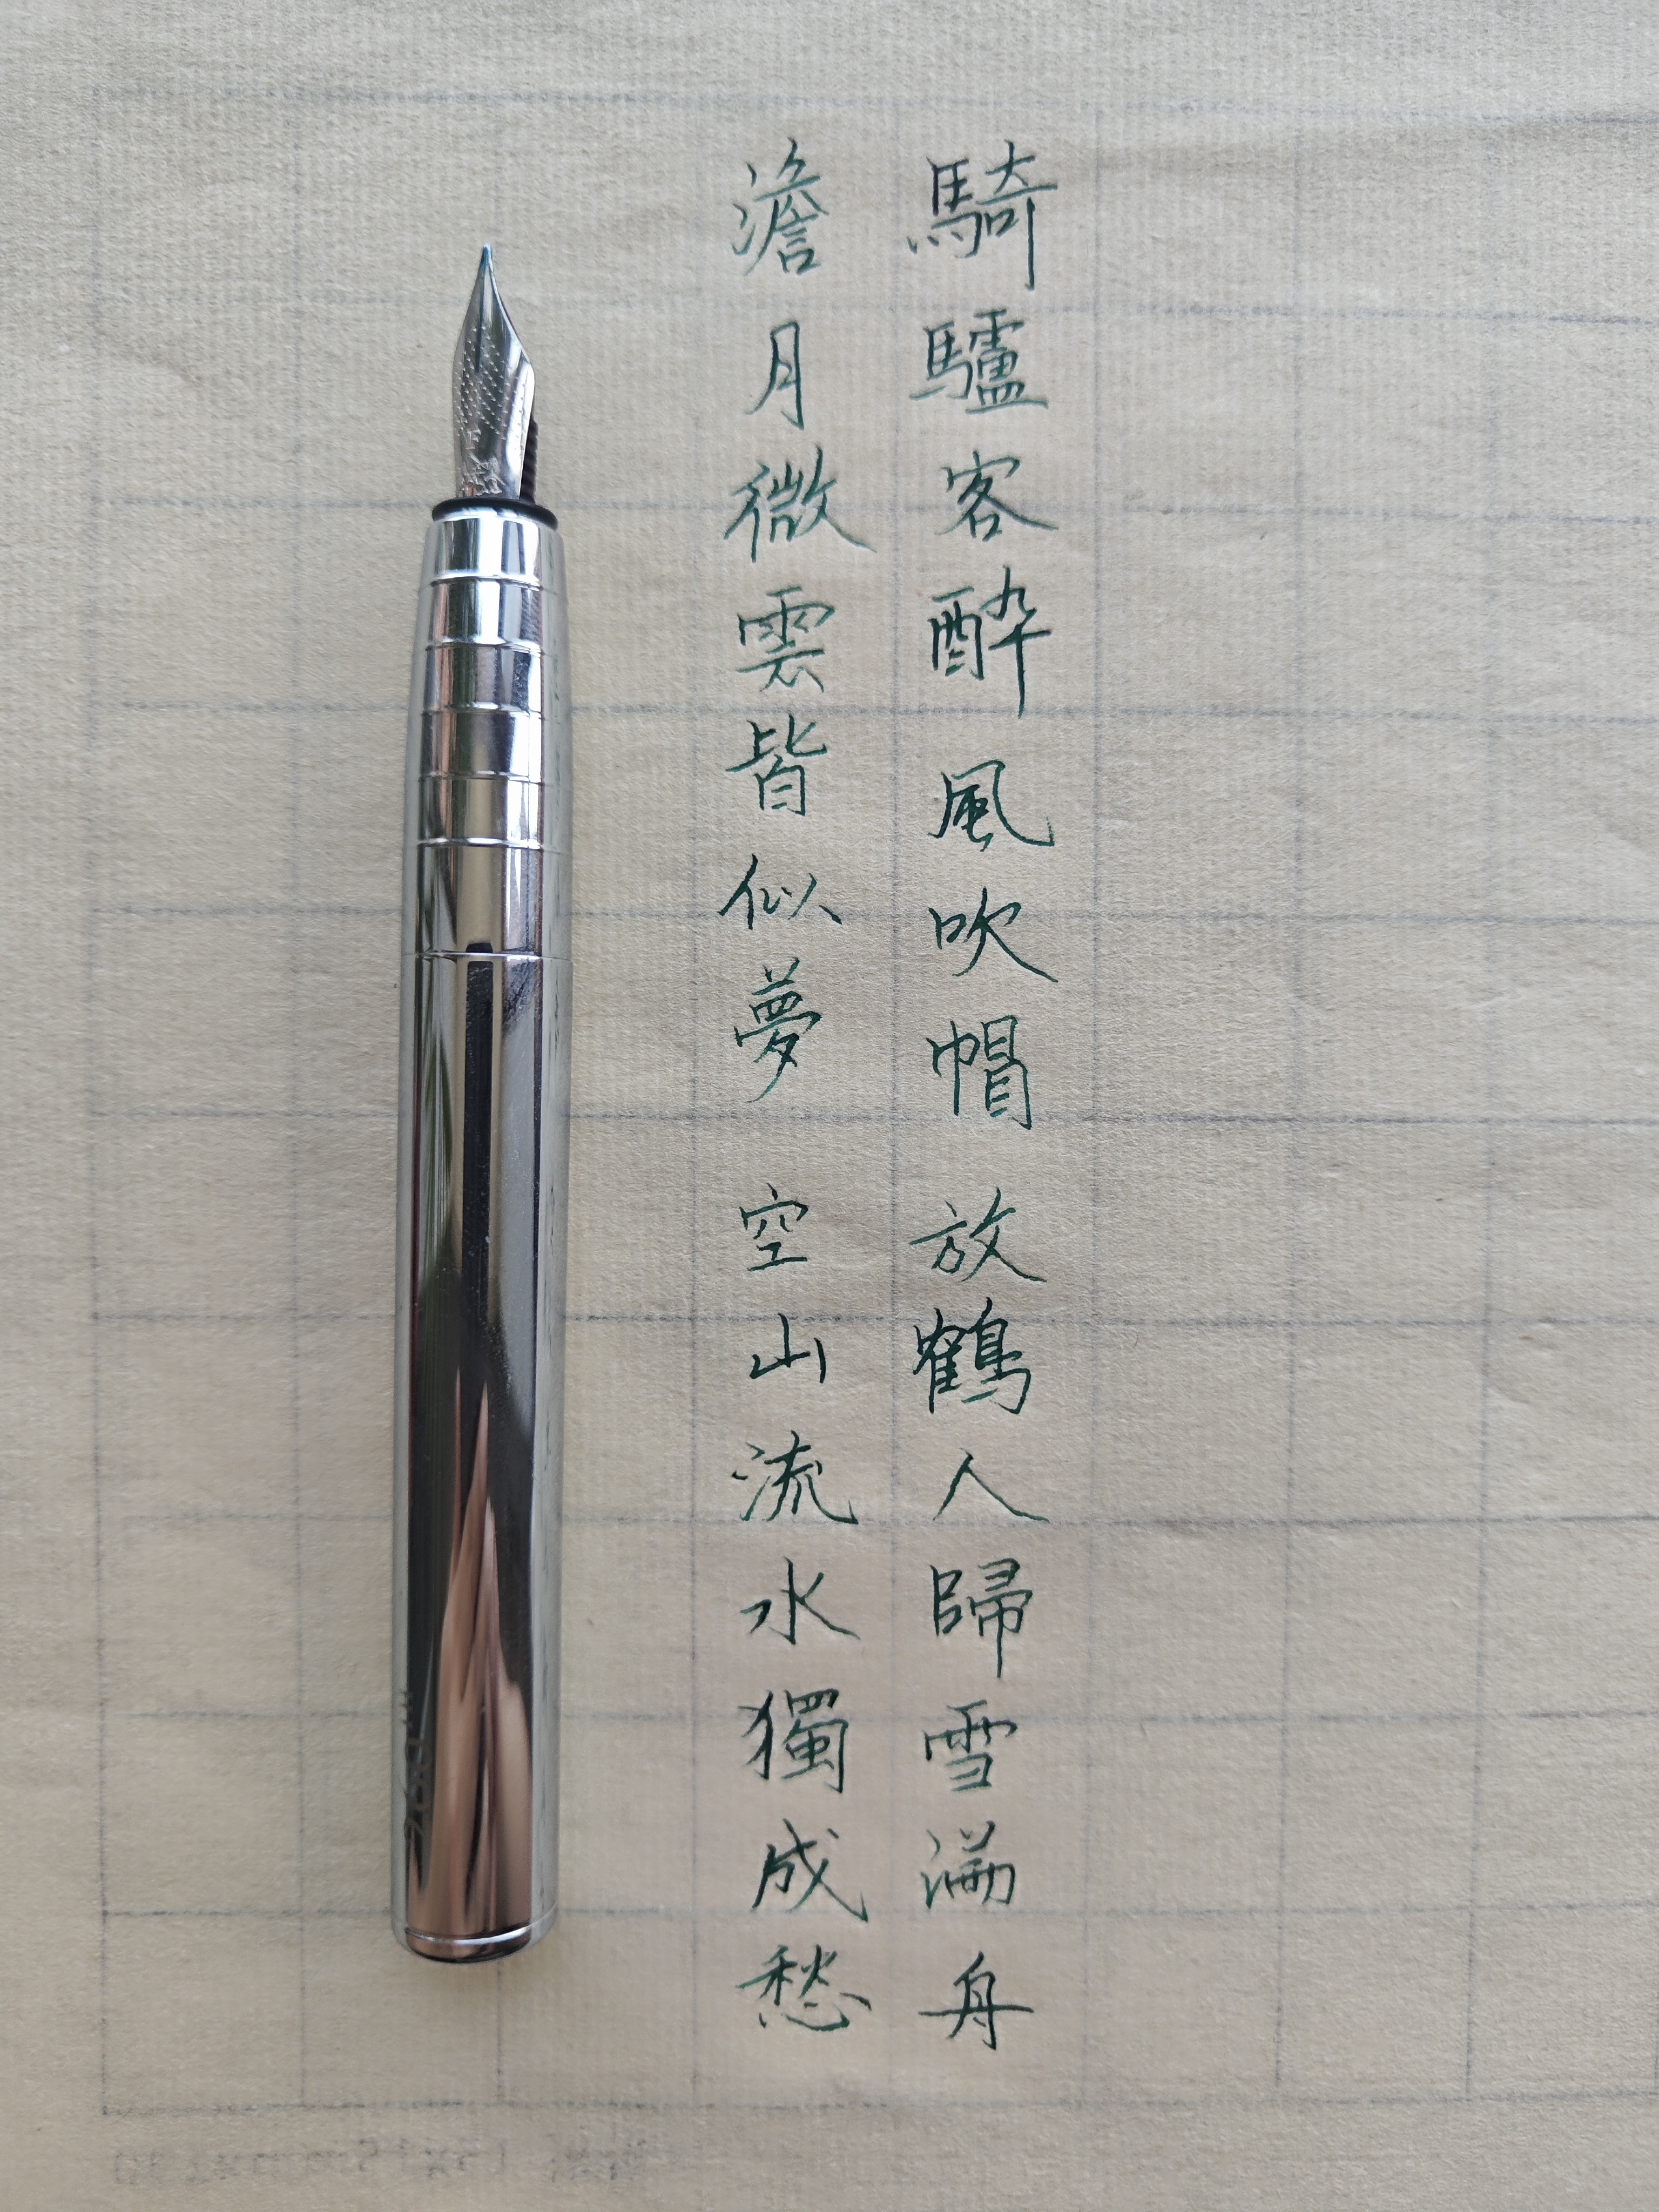 騎驢客醉風吹帽 放鶴人歸雪滿舟
澹月微雲皆似夢 空山流水獨成愁